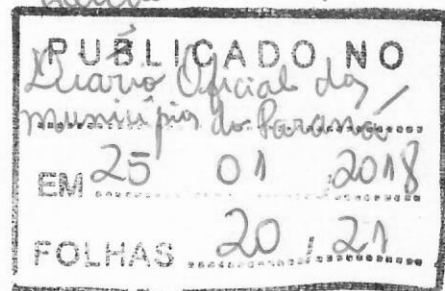 PUBLICADO NO
Diário Oficial dos
municípios do Paraná
EM 25 01 2018
FOLHAS 20 / 21